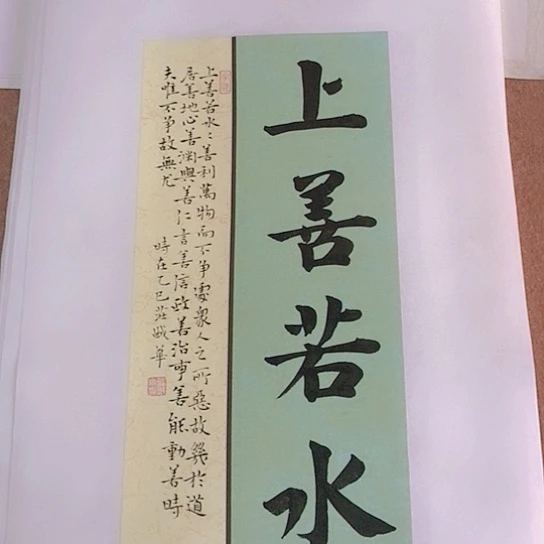 上善若水
上善若水：善利萬物而不争處衆人之所惡故幾於道
居善地心善渊與善仁言善信政善治事善能動善時
夫唯不争故無尤
時在乙巳莊城華